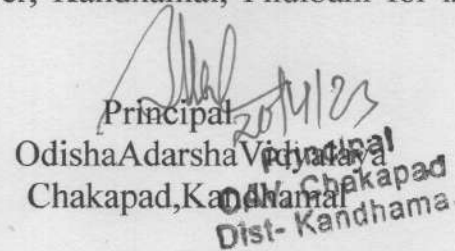 Kandhamal, Phulbani for
20/4/23
Principal
OdishaAdarshaVidyalaya
Chakapad,Kandhamal
Principal
OAV, Chakapad
Dist- Kandhama